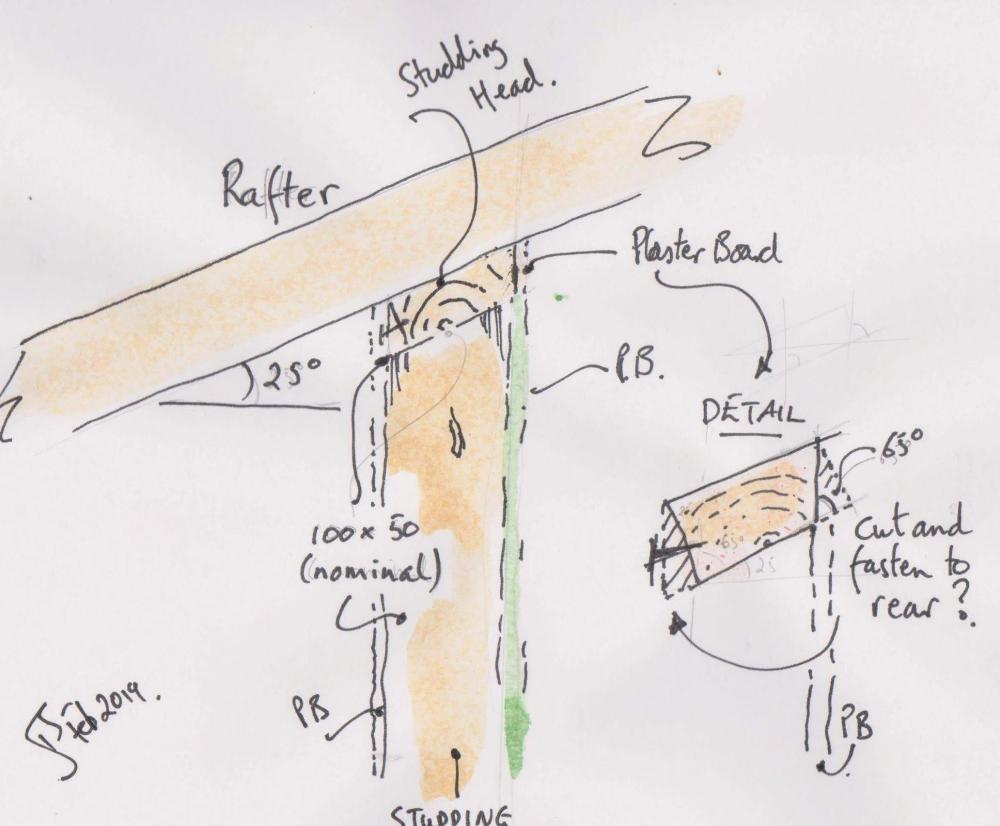 Studding
Head.
Rafter
Plaster Board
25°
P.B.
DETAIL
65°
100 x 50
(nominal)
Cut and
fasten to
rear?
65°
25
PB
PB
Feb 2019.
STUDDING